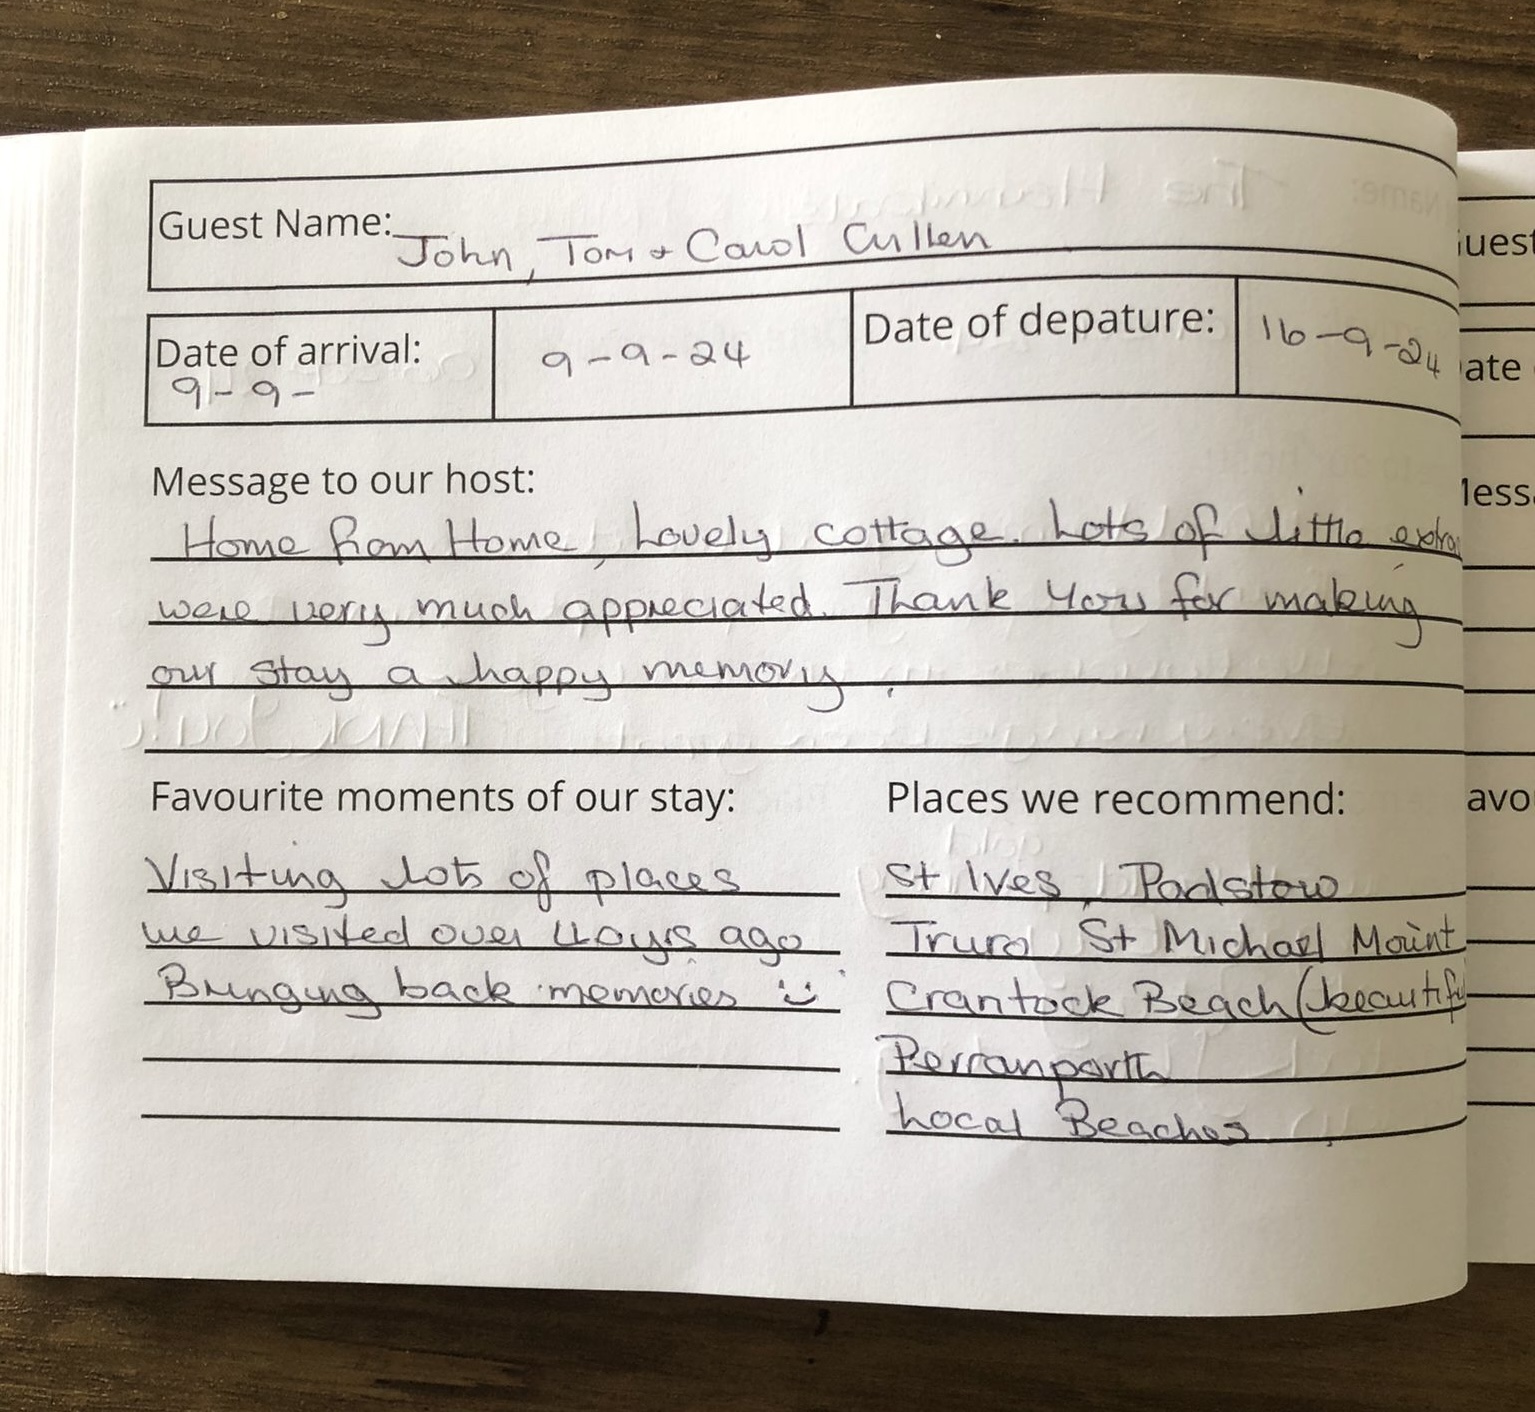 Guest Name: John, Tom + Carol Cullen
Date of arrival: 9-9-24 Date of depature: 16-9-24
9-9-
Message to our host:
Home from Home, Lovely cottage. Lots of little extra
were very much appreciated. Thank you for making
our stay a happy memory.
Favourite moments of our stay:
Visiting lots of places
we visited over 40yrs ago
Bringing back memories :)
Places we recommend:
St Ives, Padstow
Truro St Michael Mount
Crantock Beach (beautifu
Perranporth
Local Beaches.
uest
ate
ess
avo